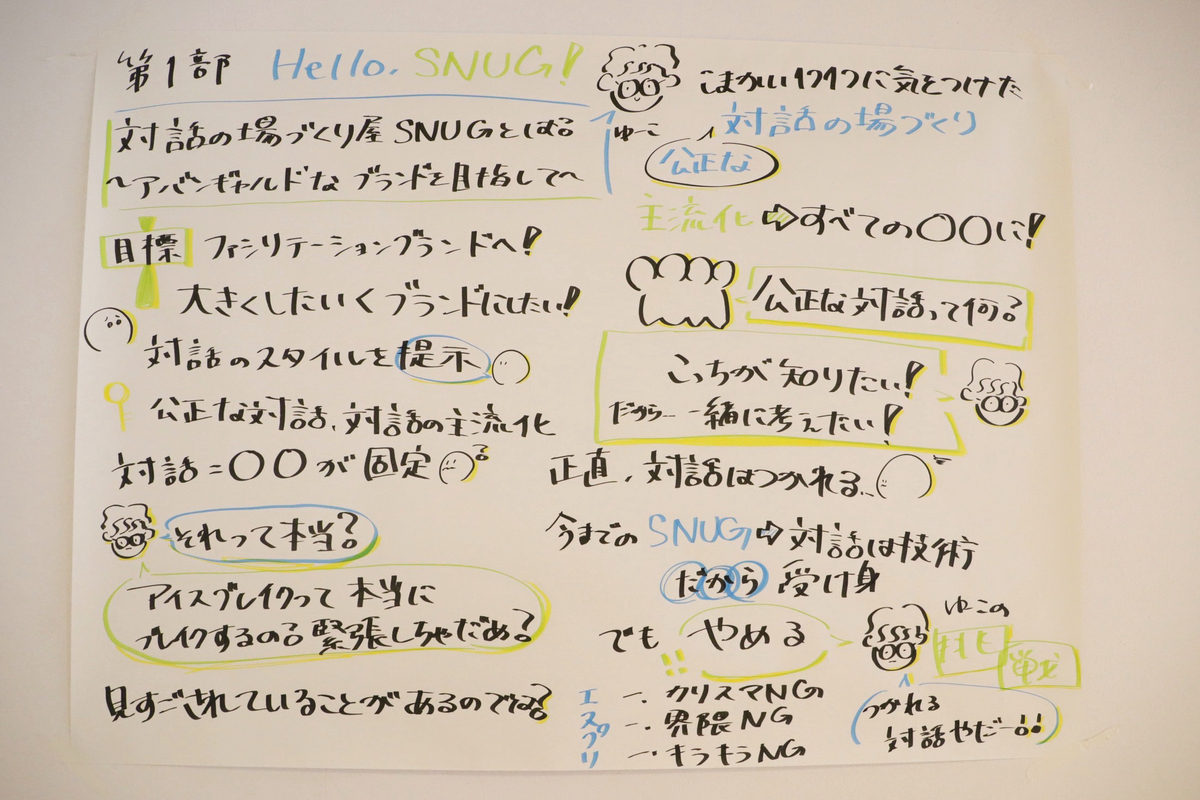 第1部 Hello. SNUG!
対話の場づくり屋 SNUGとは?
〜アバンギャルドな ブランドを目指して〜
目標 ファシリテーションブランドへ!
大きくしたいくブランドにしたい!
対話のスタイルを提示
公正な対話、対話の主流化
対話=〇〇が固定
?
それって本当?
アイスブレイクって本当に
ブレイクするの?緊張しちゃだぁ?
見すごされていることがあるのでは?
ゆに
こまかい に気をつけた
対話の場づくり
公正な
主流化⇨すべての〇〇に!
公正な対話って何?
こっちが知りたい!
だから… 一緒に考えたい!
正直、対話はつかれる…
今までの SNUG⇨対話は技術
だから 受け身
でも やめる
ゆこの
戦
エスプリ
一. カリスマNG
一. 界隈NG
一. キラキラNG
つかれる
対話やだー!!